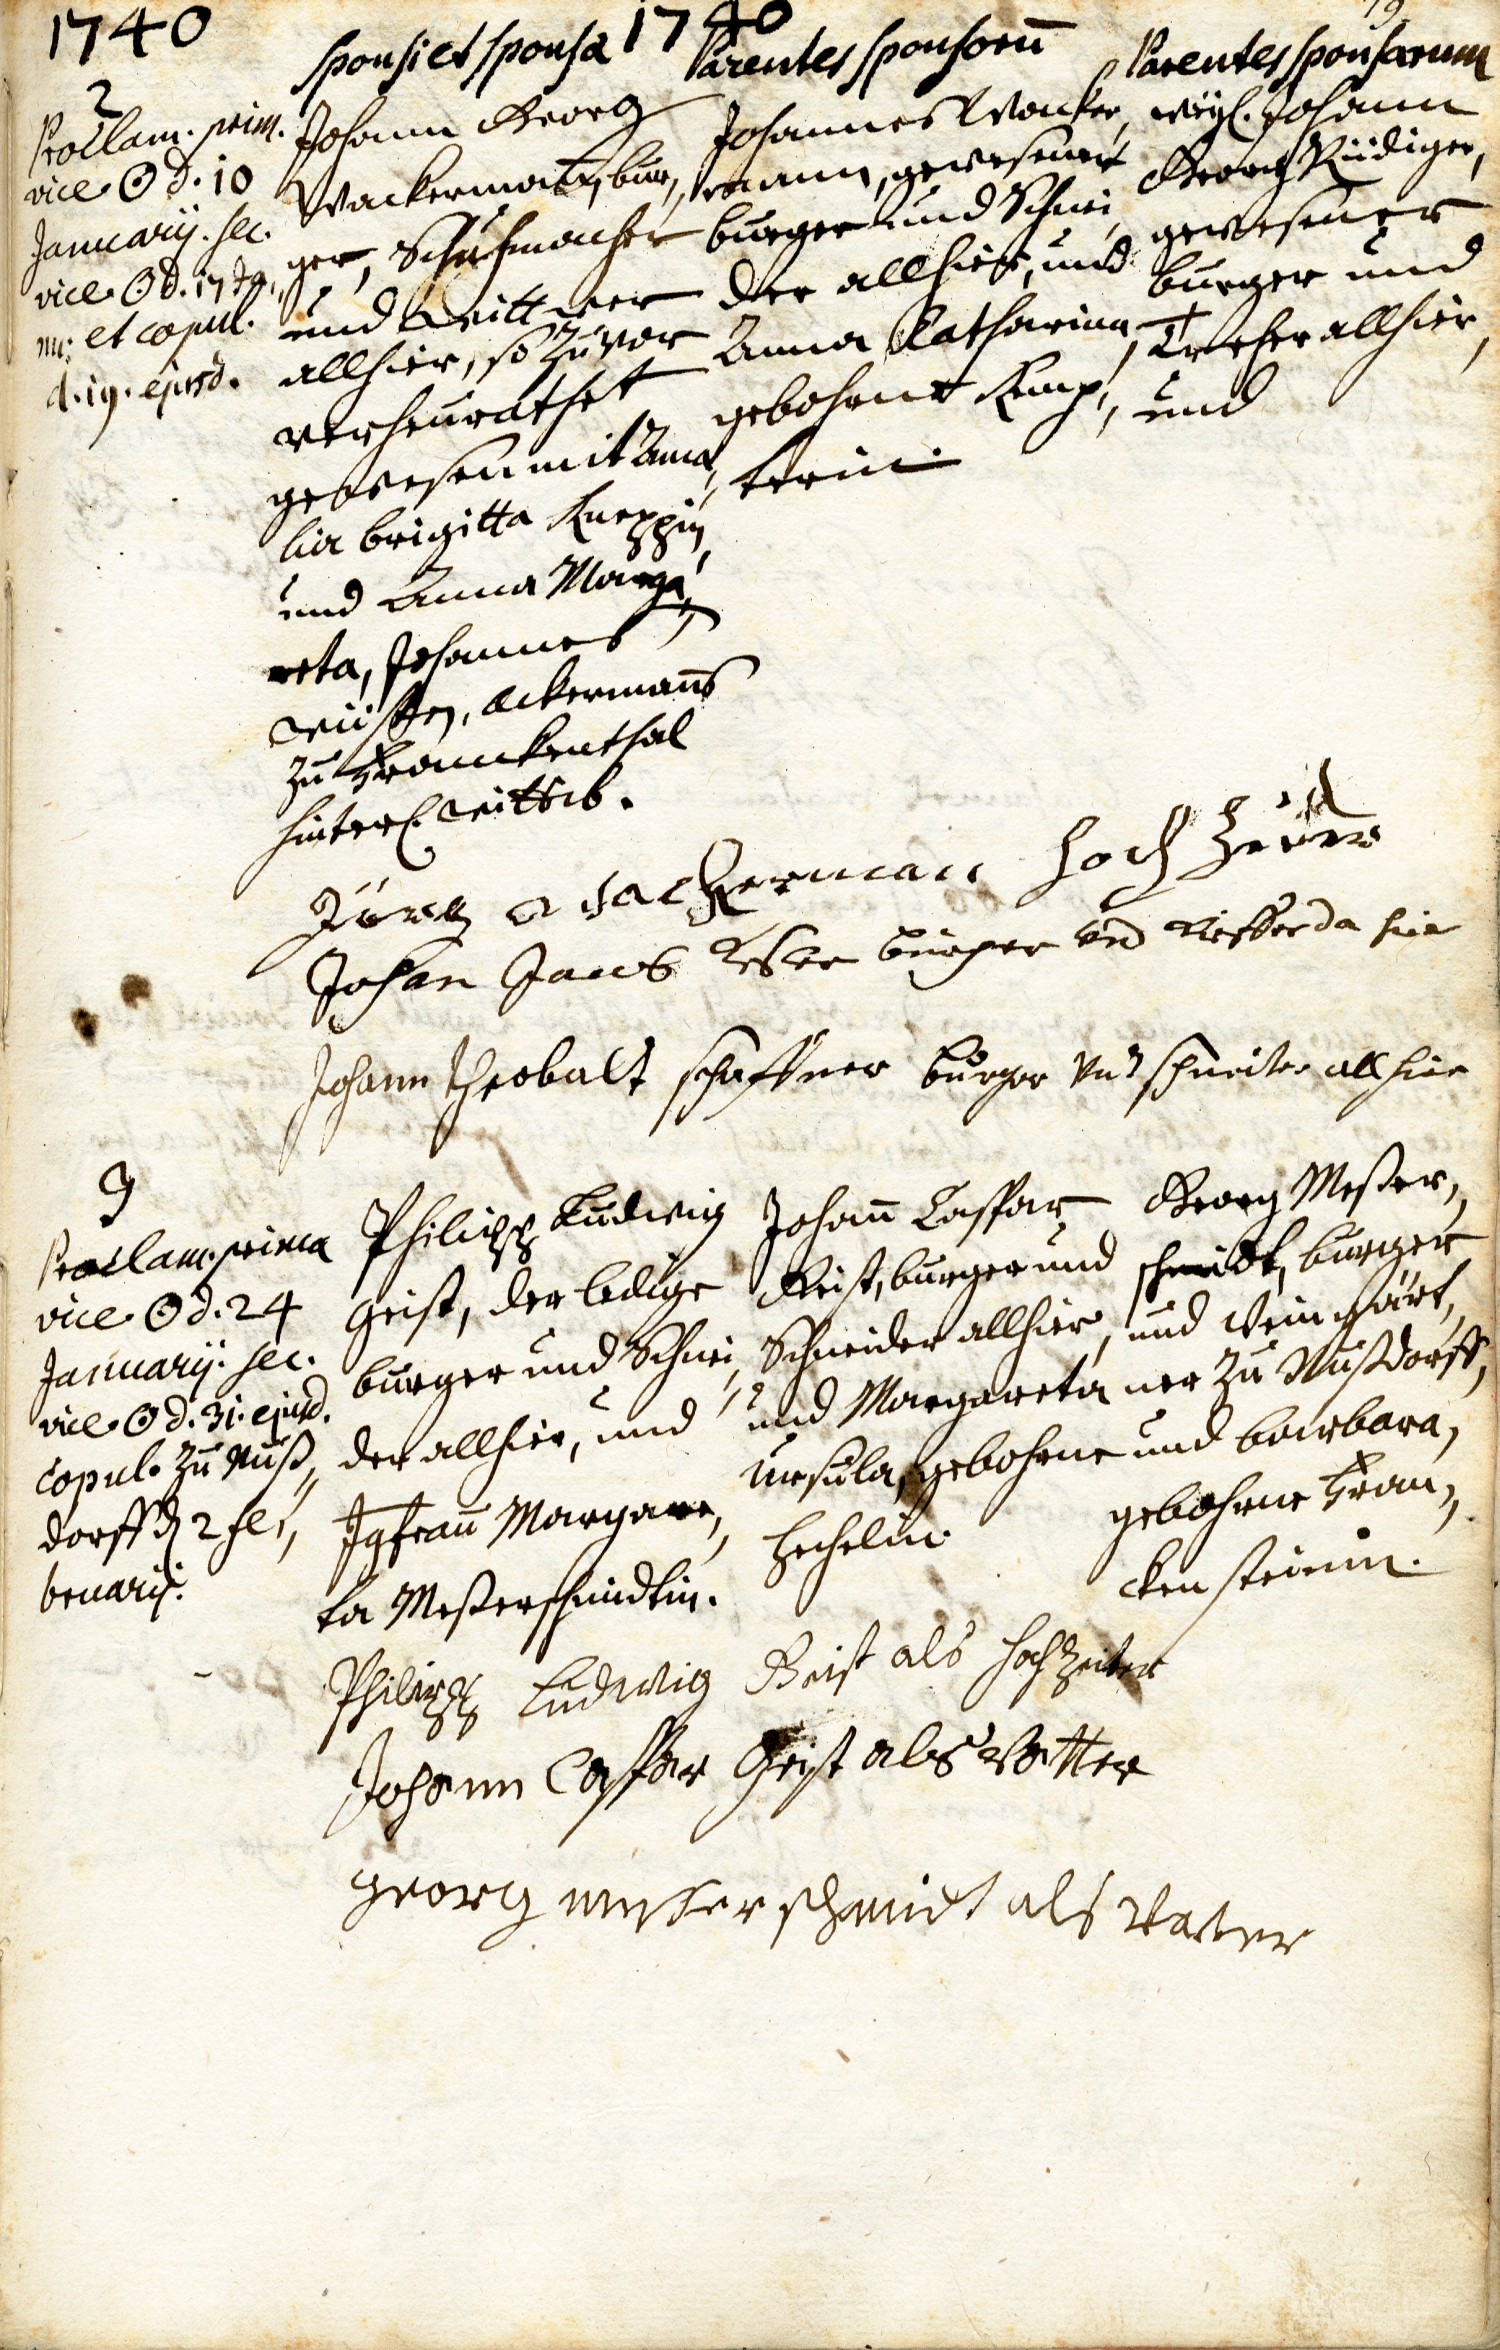 1740
1740
19
sponsi et sponsa
Parentes sponsorū
Parentes sponsarum
2
Proclam. prim.
vice ☉ d. 10
Januarij. sec.
vice ☉ d. 17 Ja,
nu; et copul.
d. 19. ejusd.
Johann Georg
Wackermann, bur,
ger, Schuhmacher
und Wittwer
allhier, so zuvor
verheurathet
gewesen mit Ama,
lia Brigitta Kneppin
und Anna Marga,
reta, Johannes
Ackermanns
zu Franckenthal
hinterl. Wittib.
Johannes Wacker,
mann, gewesener
burger und Schnei,
der allhier, und
Anna Catharina,
gebohrne Kemp,
terin.
weyl. Johann
Georg Rüdiger,
gewesener
burger und
Dreher allhier,
und
Jürg Wackerman hoch Zeider
Johan Jacob burger und da hier
Johann Theobalt schaffner burger und schneiter allhier
3
Proclam. prima
vice ☉ d. 24
Januarij. sec.
vice ☉ d. 31. ejusd.
copul. zu Nuß,
dorff d 2 fe,
bruarij.
Philipp Ludwig
Geist, der ledige
burger und Schnei,
der allhier, und
Jgfrau Margare,
ta Meßerschmidtin.
Johann Caspar
Geist, burger und
Schneider allhier,
und Margareta
Ursula, gebohrne
Hechelin
Georg Meßer,
schmidt, burger
und Weingärt,
ner zu Nußdorff,
und barbara,
gebohrne Fran,
ckensteinin.
Philipp Ludwig Geist als hochzeiter
Johann Caspar Geist als Vatter
georg messerschmidt als vatter